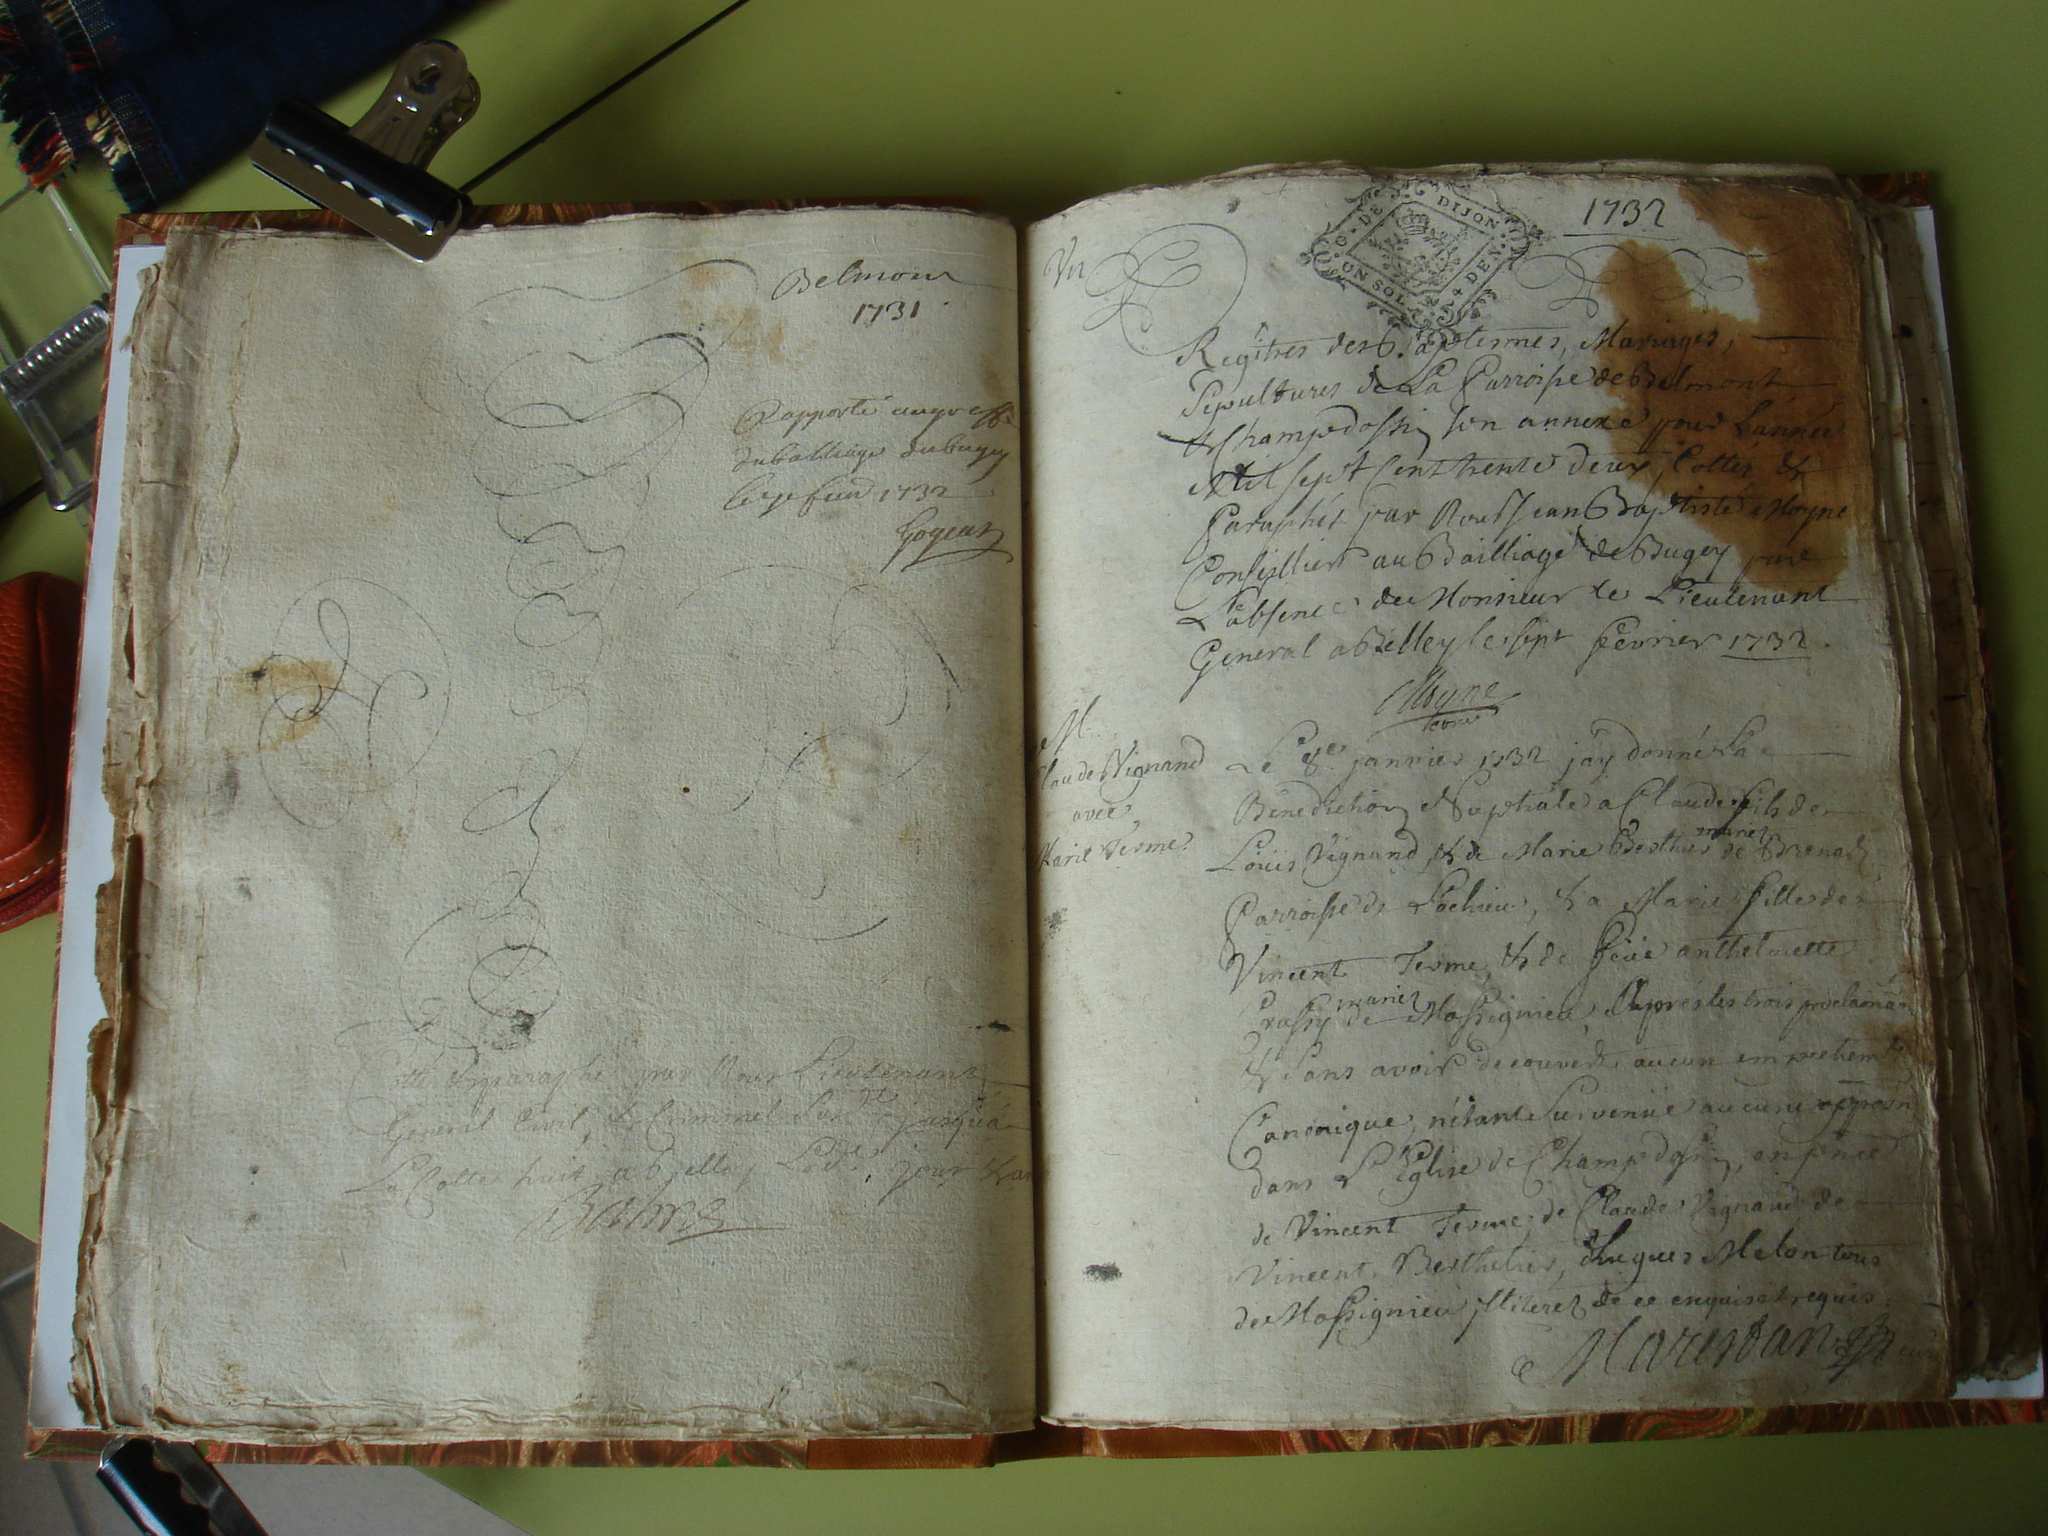 Belmont
1731
Rapporté au greffe
du balliage du bugey
1732
Cotté & paraphé par Nous Lieutenant
General Civil, & Criminel jusqu'a
La Cotte huit, a belley Led. jour & an
Un
G. DE DIJON
UN SOL 4 DEN.
1732
Regitres des Baptesmes, Mariages,
Sepultures de La Parroisse de Belmont
& Champdossin son annexe pour L'année
Mil sept Cent trente deux, Cottés &
Paraphés par Nous Jean Baptiste Moyne
Conseillier au Bailliage de Bugey pour
L'absence de Monsieur le Lieutenant
General a Belley le sept fevrier 1732.
Moyne
M.
Claude Vignand
avec
Marie Terme.
Le 8e. janvier 1732 j'ay donné La
Bénédiction Nuptiale a Claude fils de
Louis Vignand, & de Marie Berthier mariez de Brenaz
Parroisse de Lochieu, & a Marie fille de
Vincent Terme, & de feüe anthelmette
mariez de Massignieu, Apres les trois proclaman
& Sans avoir decouvert aucun empechemt
Canonique, n'étant Survenüe aucune opposon
dans L'Eglise de Champdossin, en pnce
de Vincent Terme, de Claude Vignand de
Vincent Berthelier, d'hugues Melon tous
de Massignieu, illiterez de ce enquis et requis.